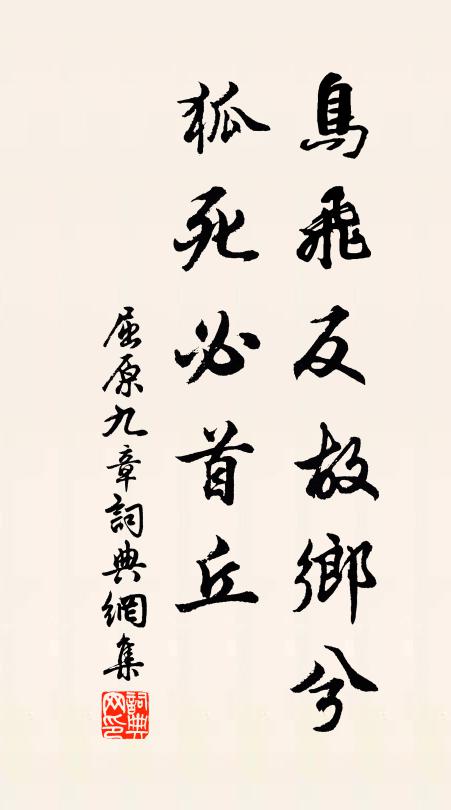 鳥飛反故鄉兮
狐死必首丘
屈原九章詞典網集
詞典网印